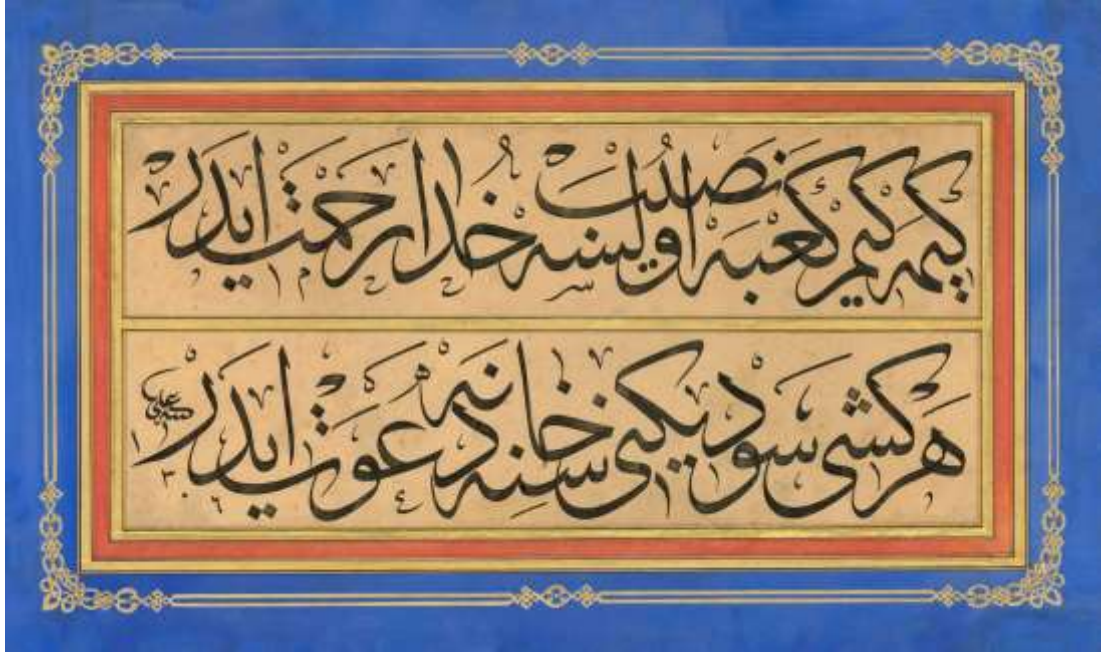 كيمه كيم كعبه نصيب اولسه خدا رحمت ايدر
هر كشی سوديكنی خانه سنه دعوت ايدر
١٣٠٦